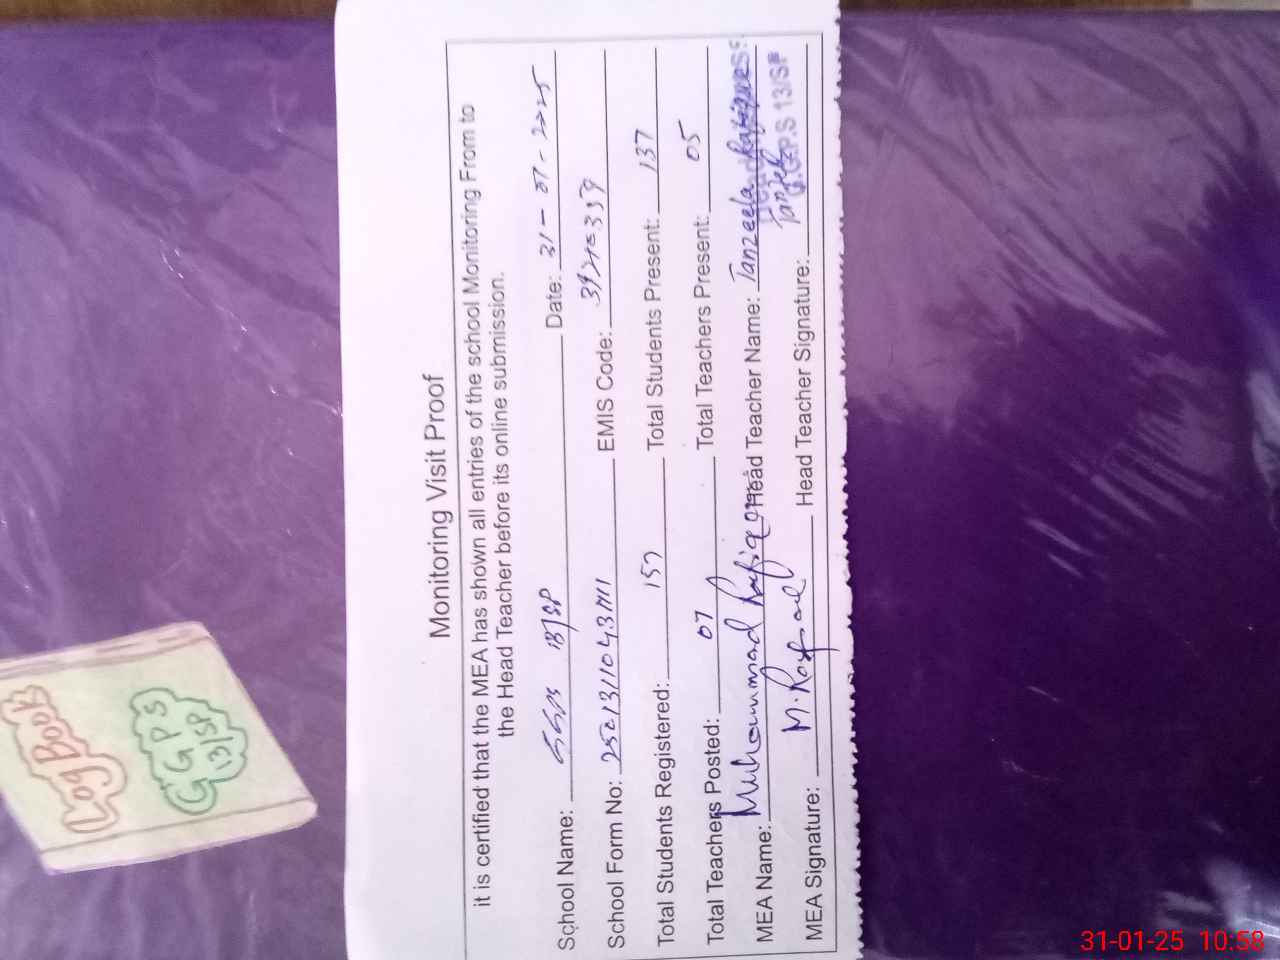 Monitoring Visit Proof
it is certified that the MEA has shown all entries of the school Monitoring From to
the Head Teacher before its online submission.
School Name: GGPS 13/SP Date: 31-01-2025
School Form No: EMIS Code:
Total Students Registered: 157 Total Students Present: 137
Total Teachers Posted: 07 Total Teachers Present: 05
MEA Name: Muhammad Rafiq Head Teacher Name: Tanzeela
MEA Signature: Head Teacher Signature:
G.G.P.S 13/SP
Log Book
GGPS
13/SP
31-01-25 10:58